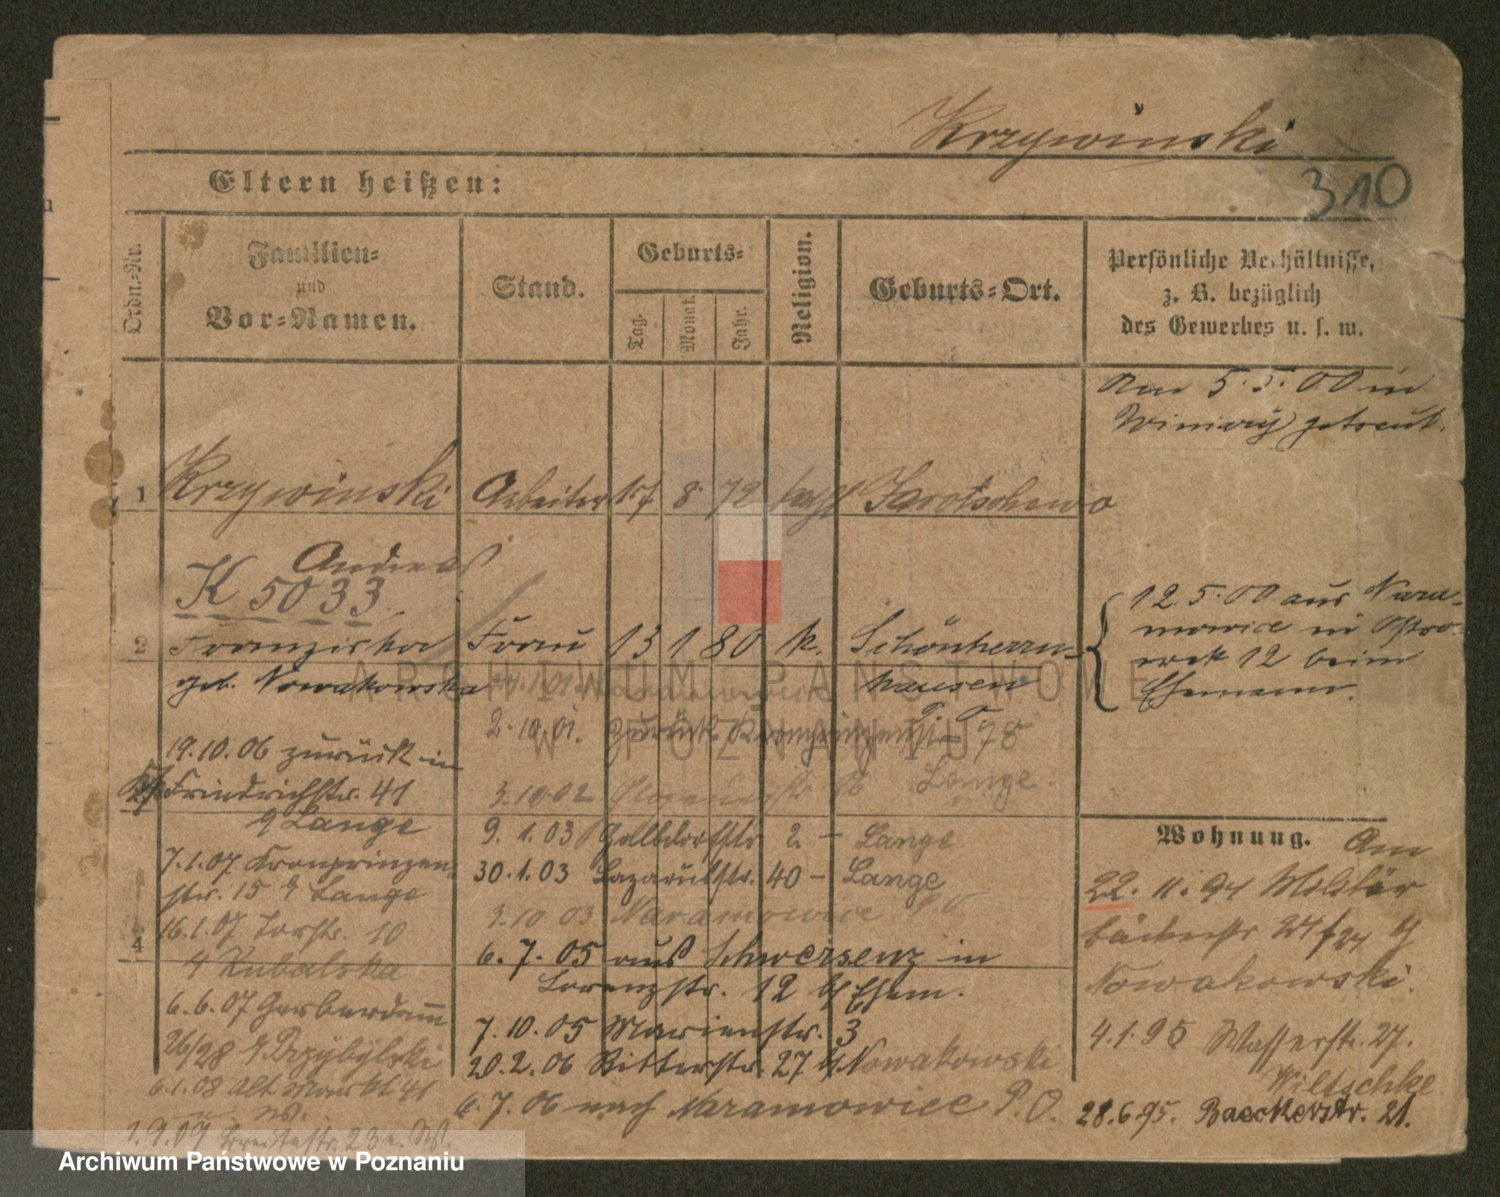 Krzywinski
310
Eltern heißen:
Ordn.-Nr.
Familien-
und
Vor-Namen.
Stand.
Geburts-
Tag.
Monat.
Jahr.
Religion.
Geburts-Ort.
Persönliche Verhältnisse,
z. B. bezüglich
des Gewerbes u. s. w.
Am 5.5.00 in
Winiary getraut.
1 Krzywinski Arbeiter 17 8 72 kath Jarotschewo
Andreas
K 5033
2 Franziska Frau 13 1 80 k. Schönherrn-
geb. Nowakowska hausen
12 5.00 aus Nara-
mowice in Ostro-
wek 12 beim
Ehemann.
2.10.01. zurück Kronprinzenstr 78
3.10.02 Lange.
9.1.03 2 - Lange
30.1.03 Lazarusstr. 40 - Lange
3.10.03 Naramowice P O
6.7.05 aus Schwersenz in
Lorenzstr. 12 b/ Ehem.
7.10.05 Marienstr. 3
20.2.06 Ritterstr. 27 b/ Nowakowski
6.7.06 nach Naramowice P.O.
19.10.06 zurück in
Friedrichstr. 41
b/ Lange
7.1.07 Kronprinzen
str. 15 b/ Lange
16.1.07 Torstr. 10
4 Kubalska
6.6.07 Gerberdamm
26/28 b/ Przybylski
6.1.08 Alt Markt 41
W.
1.9.09 Breitestr. 23 W.
Wohnung. Am
22. 11. 94 Militär
bäckerstr b/
Nowakowski.
4.1.95 Wasserstr. 27.
Wiltschke
28.6.95. Baeckerstr. 21.
ARCHIWUM PAŃSTWOWE
W POZNANIU
Archiwum Państwowe w Poznaniu